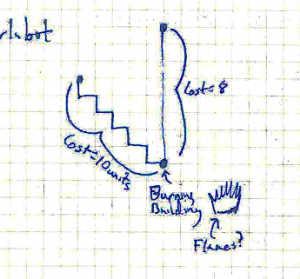 Cost=8
Cost=10 units
Burning
Building
Flames?